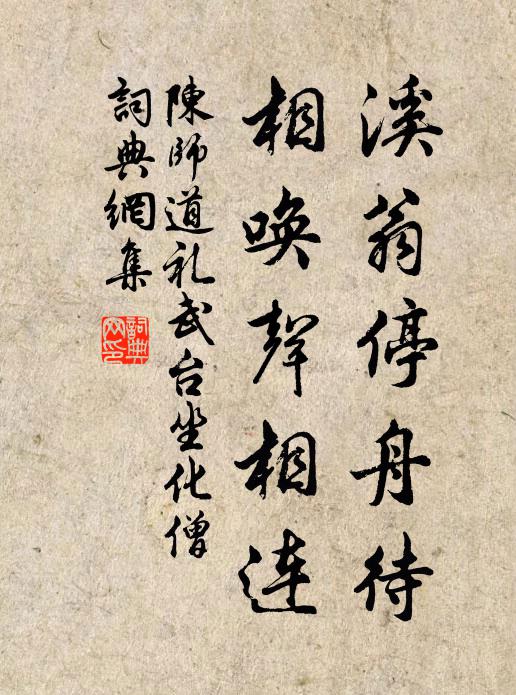 溪翁停舟待
相唤聲相連
陳師道礼武台坐化僧
詞典網集
詞典網印